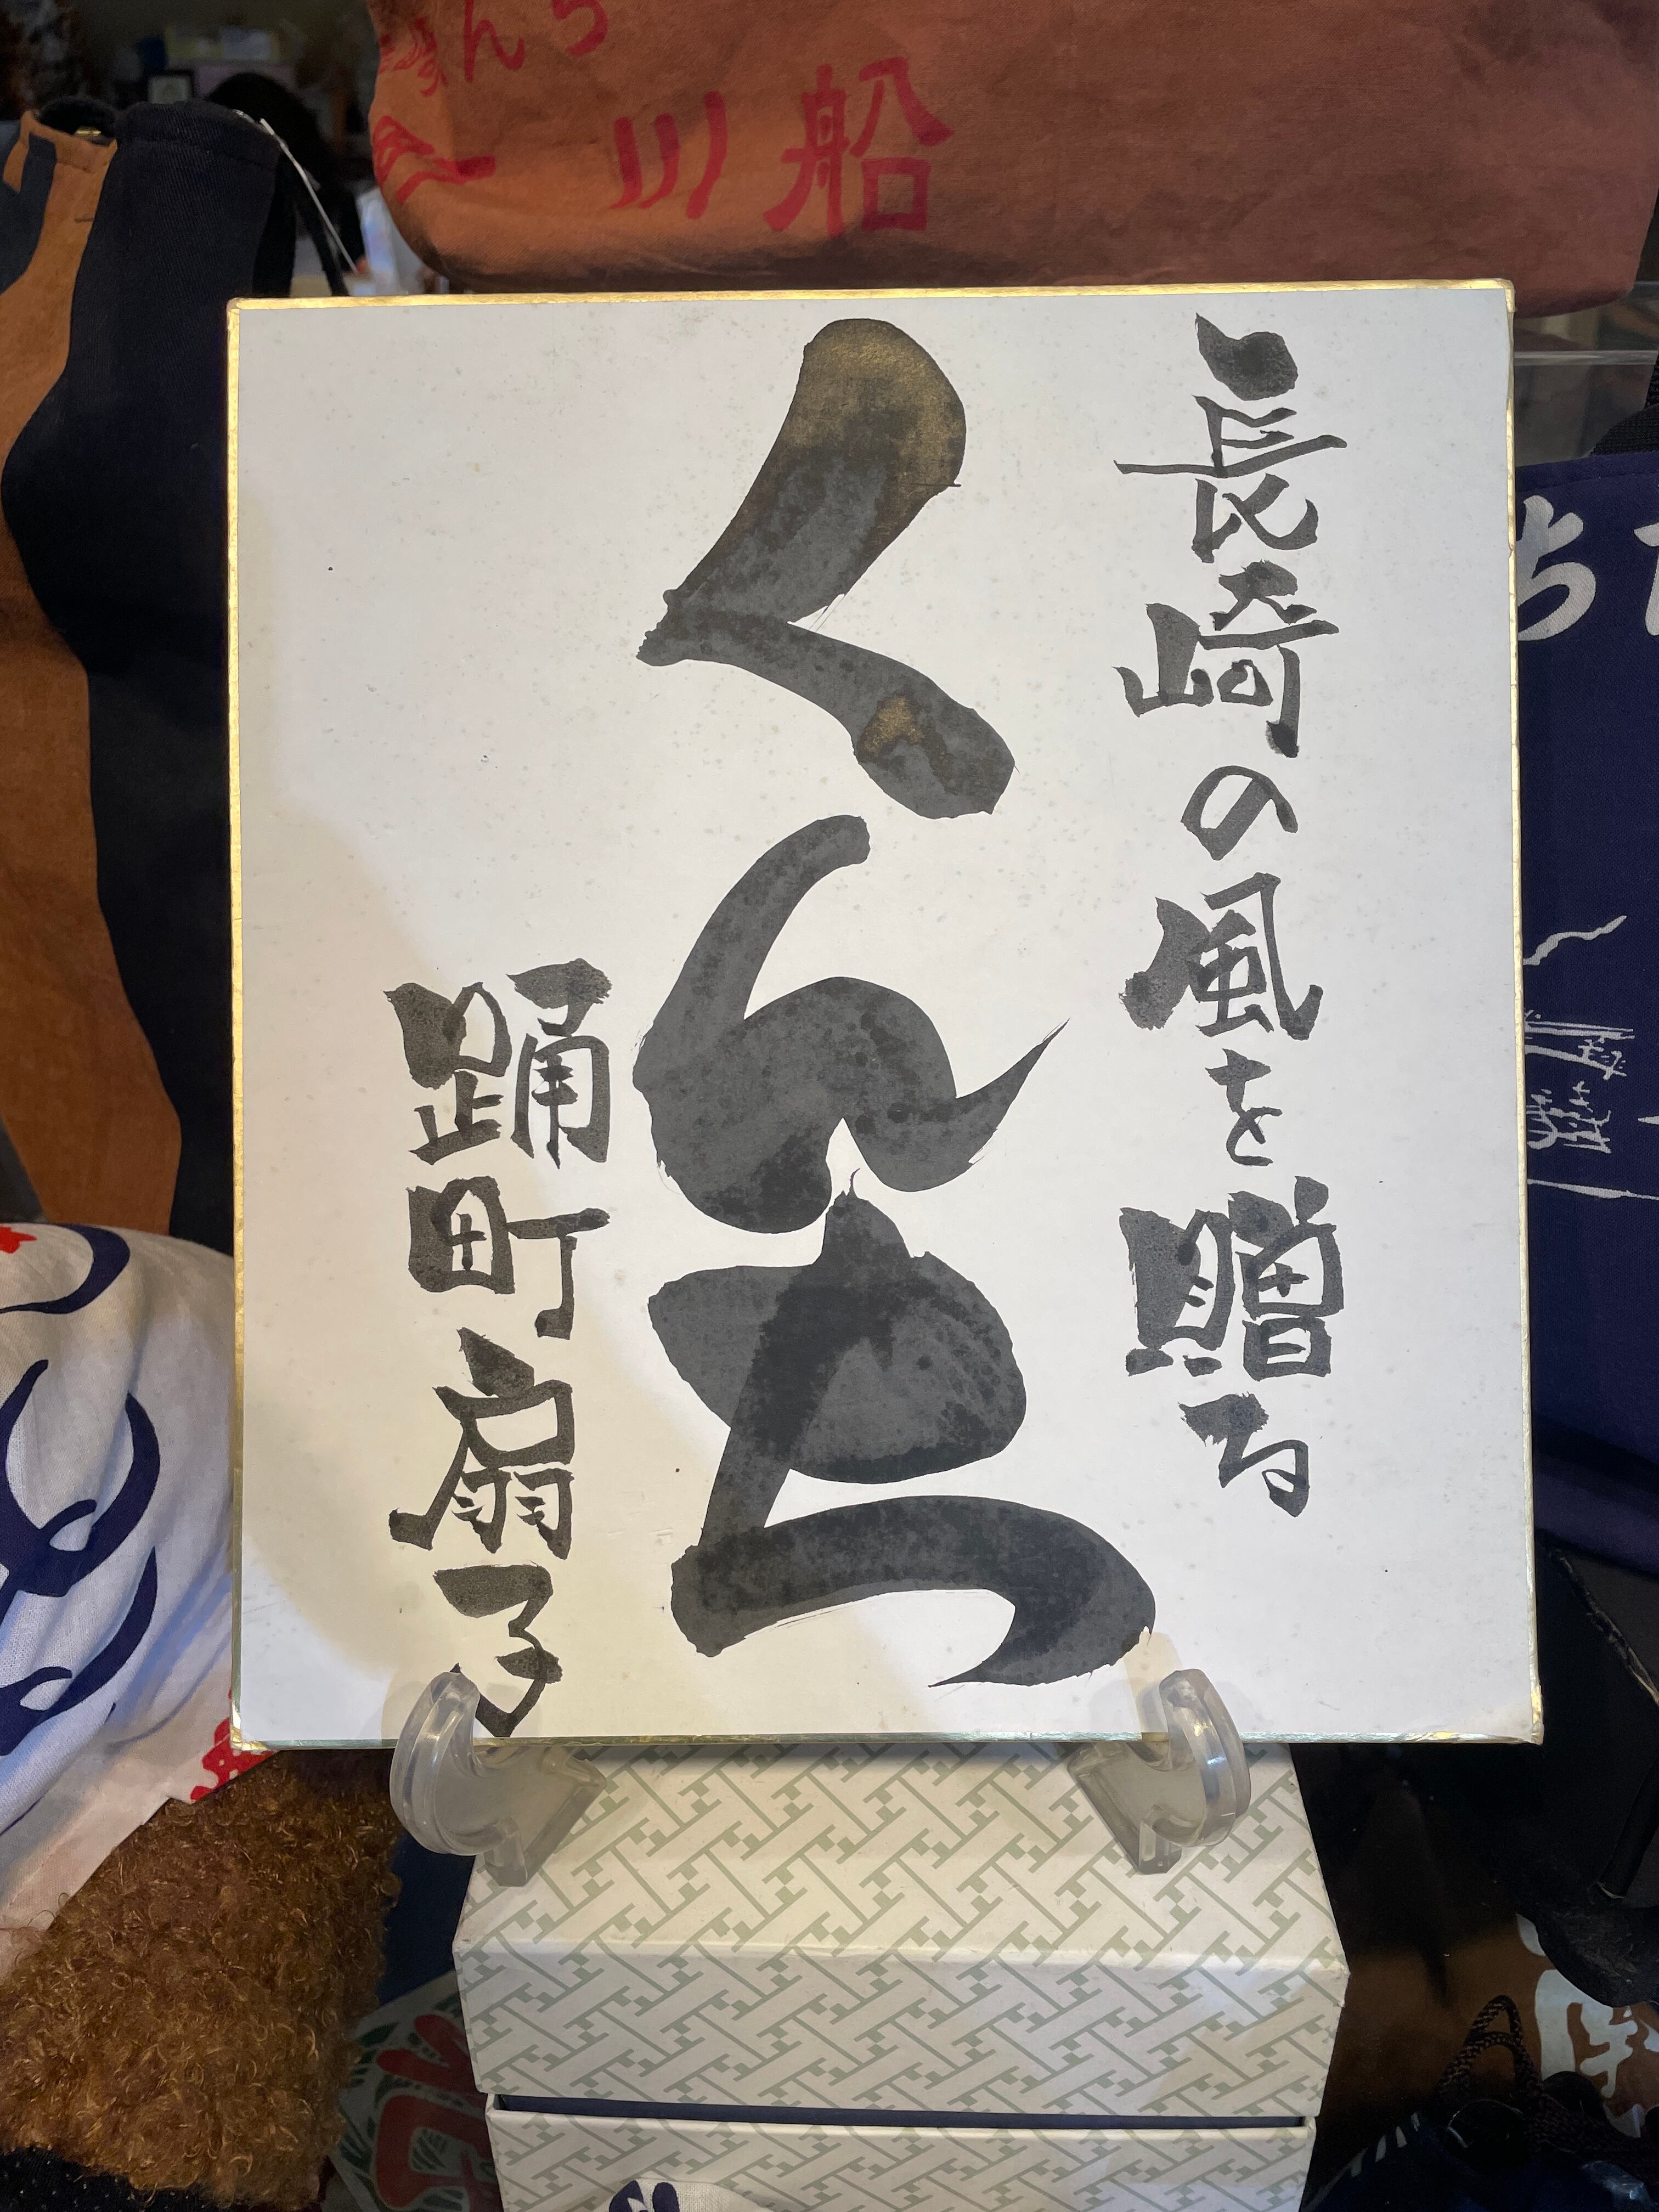 長崎の風を贈る
くんち
踊町扇子
んち
川船
ち